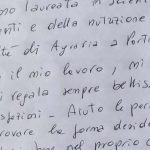 no laureata in scien
nti e della nutrizione
tà di Agraria a Porti
il mio lavoro, mi
i regala sempre belliss
sfazioni - Aiuto le per
rovare la forma deside
nel proprio c